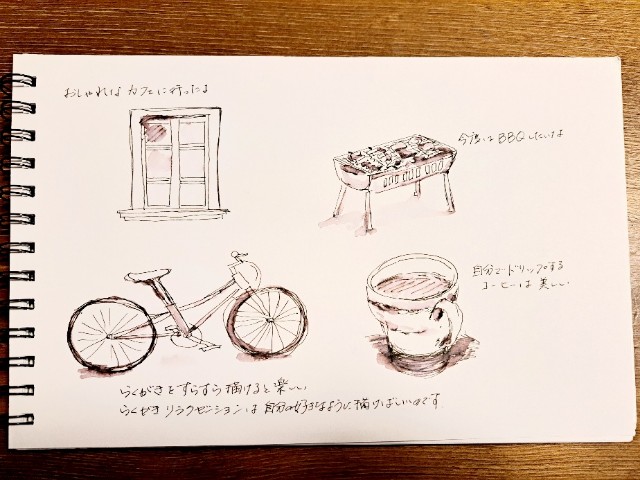 おしゃれな カフェに行ったよ
今度は BBQ したいな
自分でドリップする
コーヒーは 美しい
らくがきをすらすら描けると楽しい
らくがき リラクゼーションは 自分の好きなように 描けばいいのです.